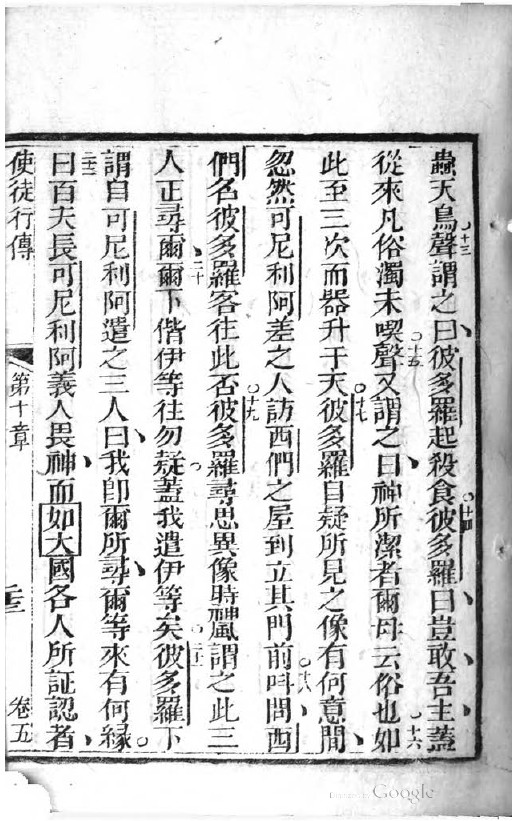 蟲天鳥○十三聲謂之曰、彼多羅起殺食○十四彼多羅曰、豈敢、吾主、蓋
從來凡俗濁未喫○十五聲又謂之曰、神所潔者爾毋云俗也○十六如
此至三次而器升于天○十七彼多羅自疑所見之像有何意間、
忽然可尼利阿差之人訪西們之屋到立其門前○十八呌問、西
們名彼多羅客往此否○十九彼多羅尋思異像時神風謂之此三
人正尋爾、○二十爾下偕伊等往勿疑○蓋我遣伊等矣○二十一彼多羅下
謂自可尼利阿遣之三人曰、我卽爾所尋、爾等來有何緣○
二十二曰百夫長可尼利阿義人畏神、而如大國各人所証認者、
使徒行傳 第十章 二十三 卷五
Google